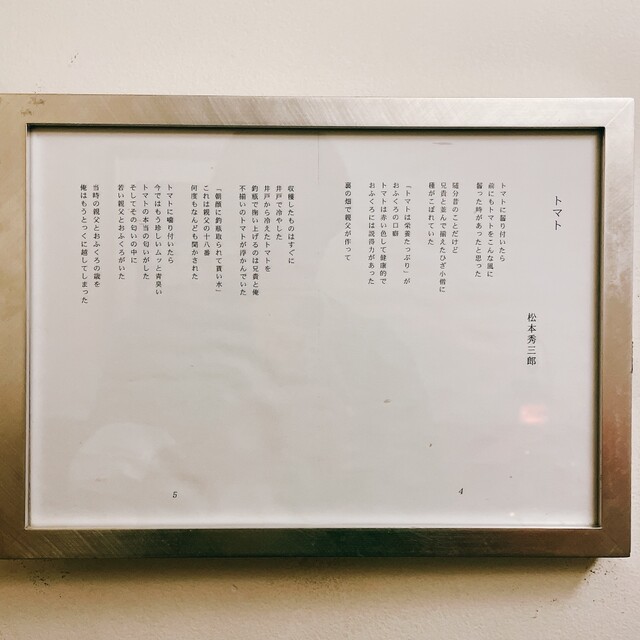 トマト
松本秀三郎
トマトに齧り付いたら
前にもトマトをこんな風に
齧った時があったと思った
随分昔のことだけど
兄貴と並んで揃えたひざ小僧に
種がこぼれていた
「トマトは栄養たっぷり」が
おふくろの口癖
トマトは赤い色して健康的で
おふくろには説得力があった
裏の畑で親父が作って
4
収穫したものはすぐに
井戸で冷やした
井戸から冷えたトマトを
釣瓶で掬い上げるのは兄貴と俺
不揃いのトマトが浮かんでいた
「朝顔に釣瓶取られて貰い水」
これは親父の十八番
何度もなんども聞かされた
トマトに噛り付いたら
今ではもう珍しいムッと青臭い
トマトの本当の匂いがした
そしてその匂いの中に
若い親父とおふくろがいた
当時の親父とおふくろの歳を
俺はもうとっくに越してしまった
5